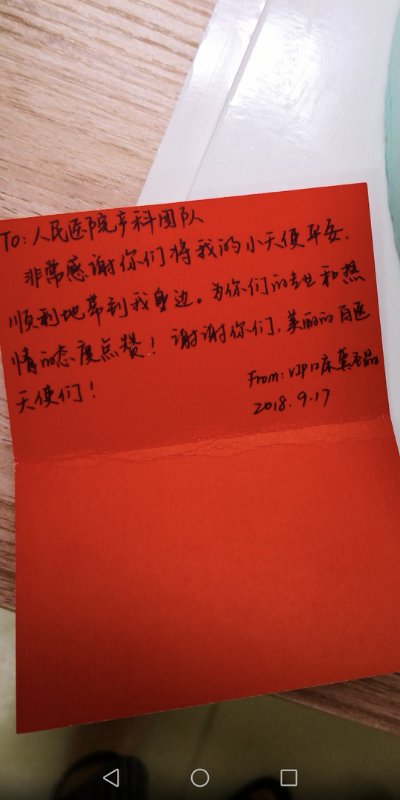 To: 人民医院产科团队
非常感谢你们将我的小天使平安、
顺利地带到我身边。为你们的专业和热
情的态度点赞！谢谢你们，美丽的白医
天使们！
From: VIP12床
2018.9.17